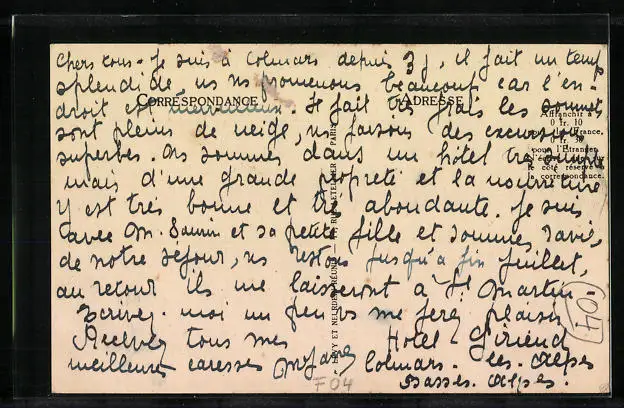 Chers tous. Je suis à Colmars depuis 3 j, il fait un temps
splendide, ns ns promenons beaucoup car l'en-
CORRESPONDANCE
ADRESSE
droit est merveilleux. Il fait très frais les sommets
sont pleins de neige, ns faisons des excursions
superbes. Ns sommes dans un hôtel très simple
mais d'une grande propreté et la nourriture
y est très bonne et très abondante. Je suis
avec M. et sa petite fille et sommes ravis,
de notre séjour, ns restons jusqu'à fin juillet,
au retour ils me laisseront à St Martin
Ecrivez-moi un peu vs me ferez plaisir
Recevez tous mes Hotel Giriend
meilleures caresses Colmars-les-Alpes
Basses-Alpes.
Affranchir à
0 fr. 10
la France,
0 fr.
pour l'Etranger
le côté réservé à
la correspondance.
LEVY ET NEURDEIN RÉUNIS, RUE LETELLIER, PARIS
104
F04